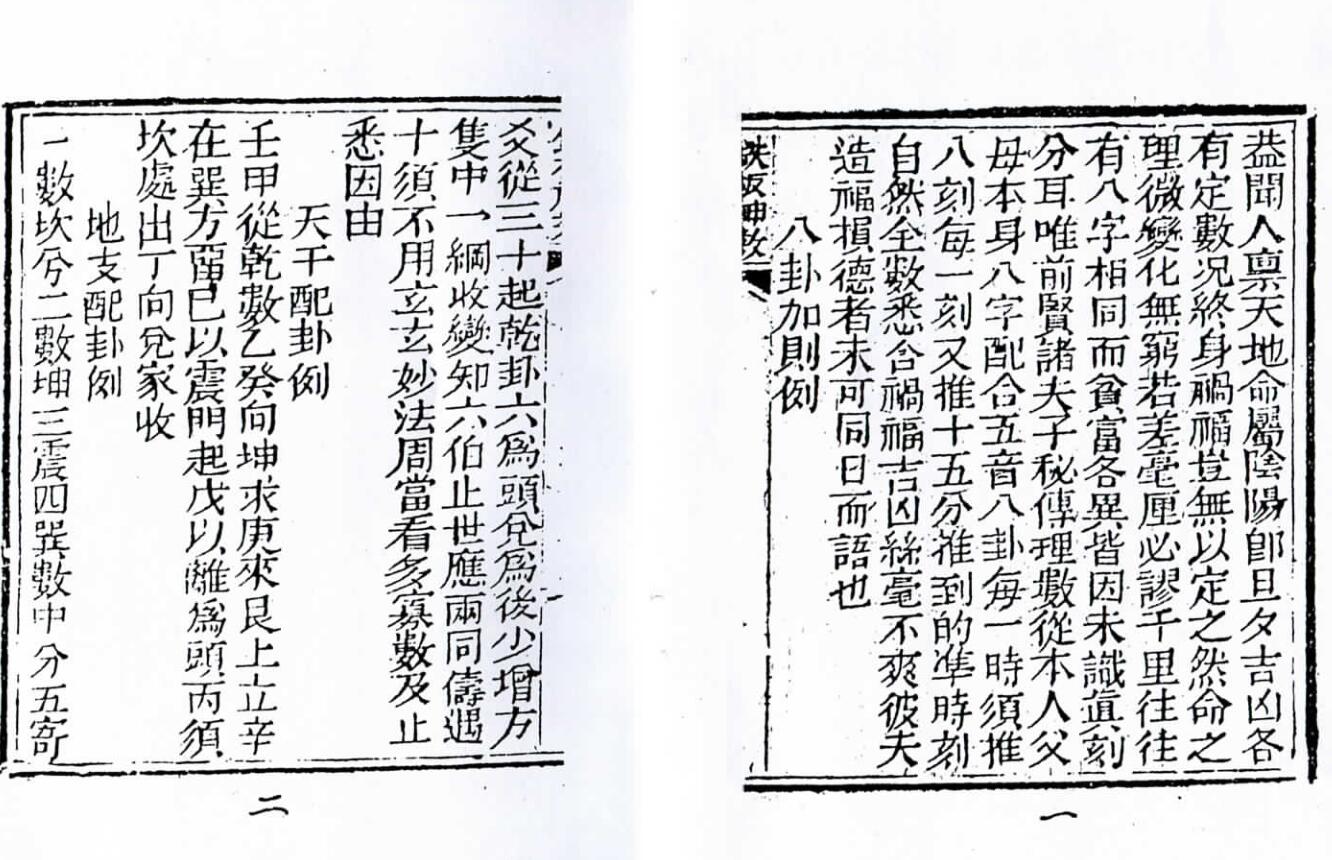 葢聞人禀天地命屬陰陽卽旦夕吉凶各
有定數况終身禍福豈無以定之然命之
理微變化無窮若差毫厘必謬千里往往
有八字相同而貧富各異皆因未識眞刻
分耳唯前賢諸夫子秘傳理數從本人父
母本身八字配合五音八卦每一時須推
八刻每一刻又推十五分推到的準時刻
自然全數悉合禍福吉凶絲毫不爽彼夫
造福損德者未可同日而語也
八卦加則例
鉄板神数
一
爻從三十起乾卦六爲頭兌爲後少增方
隻中一綱收變知六伯止世應兩同儔遇
十須不用玄玄妙法周當看多寡數及止
悉因由
天干配卦例
壬甲從乾數乙癸向坤求庚來艮上立辛
在巽方畱己以震門起戊以離爲頭丙須
坎處出丁向兌家收
地支配卦例
一數坎兮二數坤三震四巽數中分五寄
二